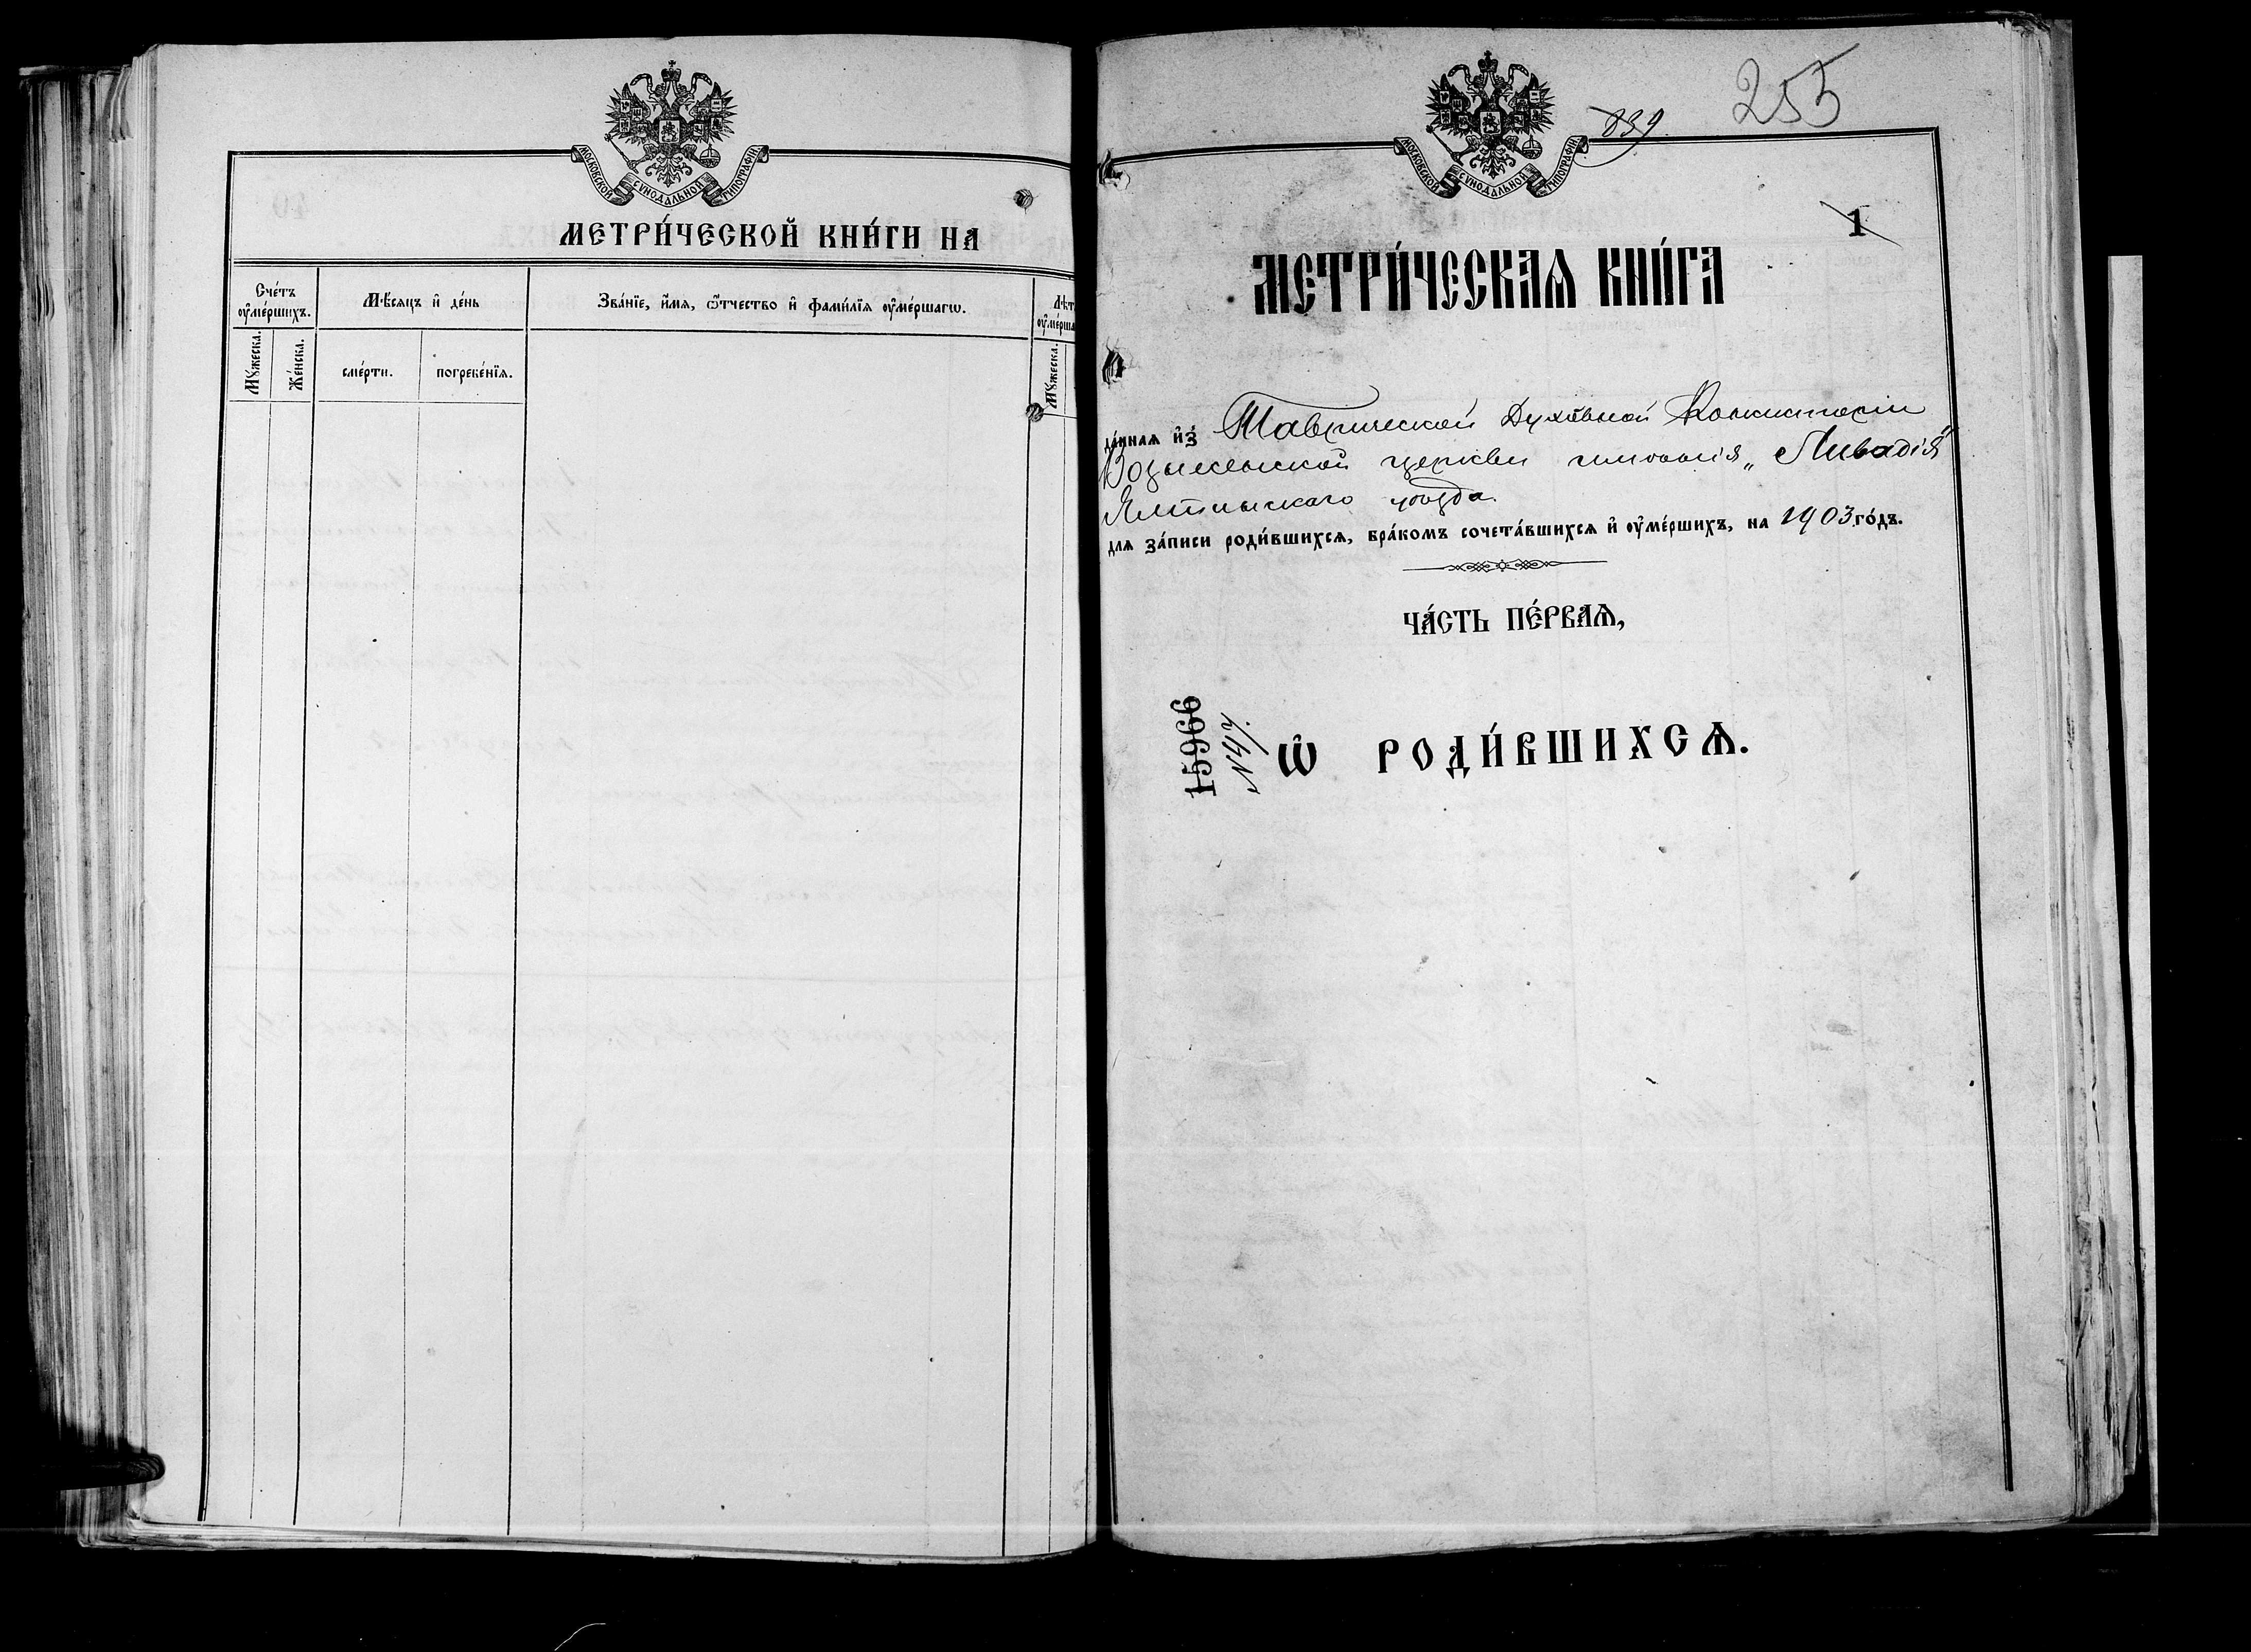 МОСКОВСКОЙ СѴНОДАЛЬНОЙ ТИПОГРАФІИ
МЕТРИ́ЧЕСКОЙ КНИ́ГИ НА
Сче́тъ ᲂу҆ме́ршихъ.
Мꙋ́жеска.
Же́нска.
Мѣ́сяцъ и҆ де́нь
сме́рти.
погребе́нїя.
Зва́нїе, и҆́мя, ѻ҆́тчество и҆ фами́лїя ᲂу҆ме́ршагѡ.
Лѣт
ᲂу҆ме́рша
Мꙋ́жеска.
МОСКОВСКОЙ СѴНОДАЛЬНОЙ ТИПОГРАФІИ
839.
255
1
МЕТРИ́ЧЕСКАѦ КНИ́ГА
да́нная и҆з̾ Таврической Духовной Консисторіи
Воздвиженской церкви имѣнія „Ливадія"
Ялтинскаго уѣзда.
для за́писи роди́вшихся, бра́комъ сочета́вшихся и҆ ᲂу҆ме́ршихъ, на 1903 го́дъ.
ЧА́СТЬ ПЕ́РВАѦ,
15966
Ѡ҆ РОДИ́ВШИХСѦ.